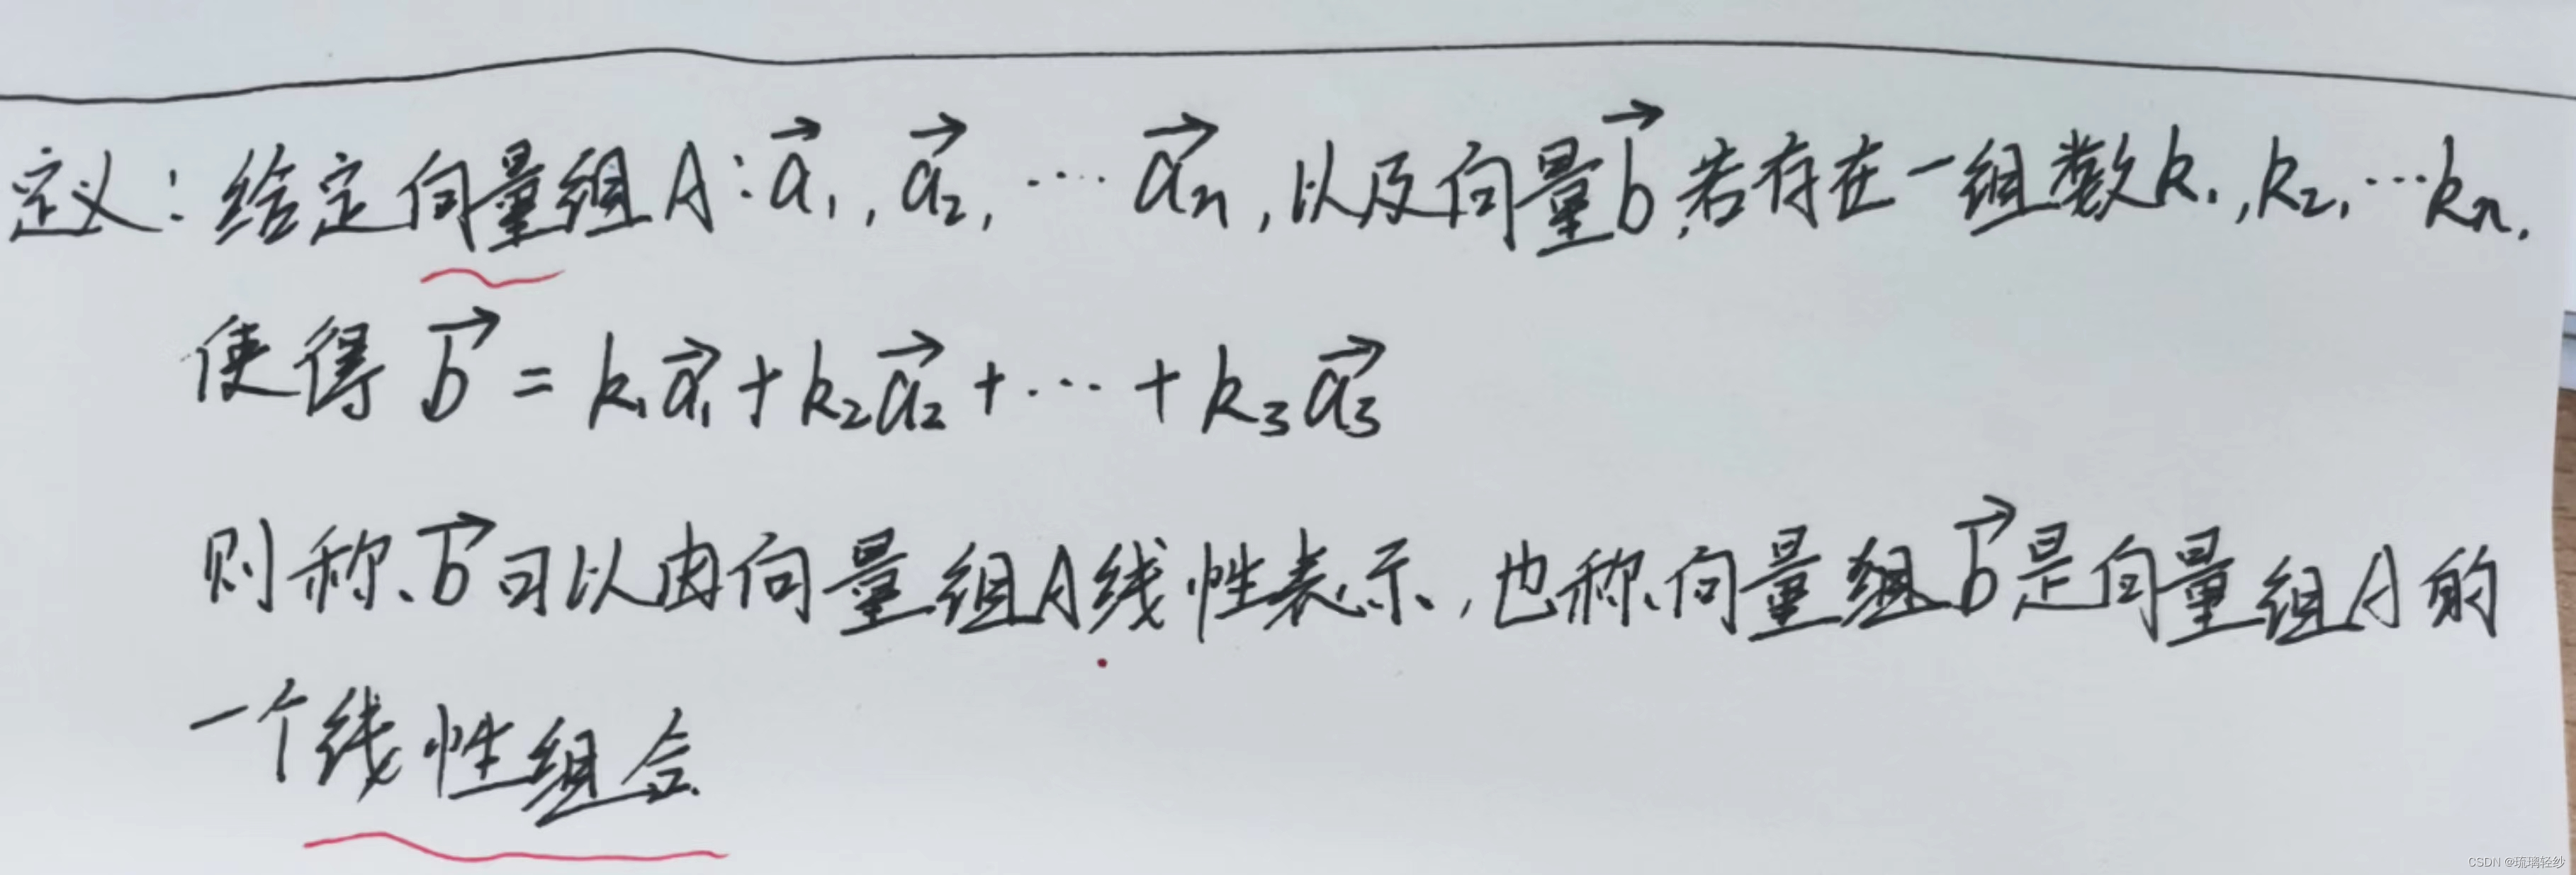 定义：给定向量组A：a⃗₁, a⃗₂, … a⃗ₙ, 以及向量b⃗, 若存在一组数k₁, k₂, … kₙ,
使得 b⃗ = k₁a⃗₁ + k₂a⃗₂ + … + k₃a⃗₃
则称b⃗可以由向量组A线性表示, 也称向量组b⃗是向量组A的
一个线性组合
CSDN @琉璃轻纱